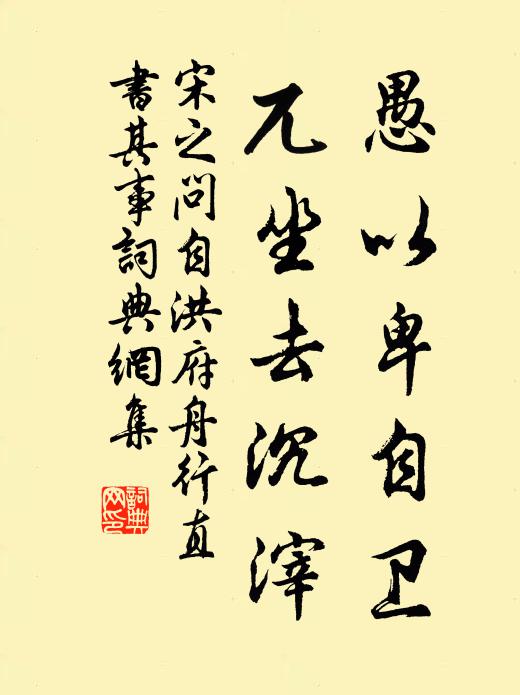 愚以卑自卫
兀坐去沉滓
宋之问自洪府舟行直
书其事詞典網集
詞典网印